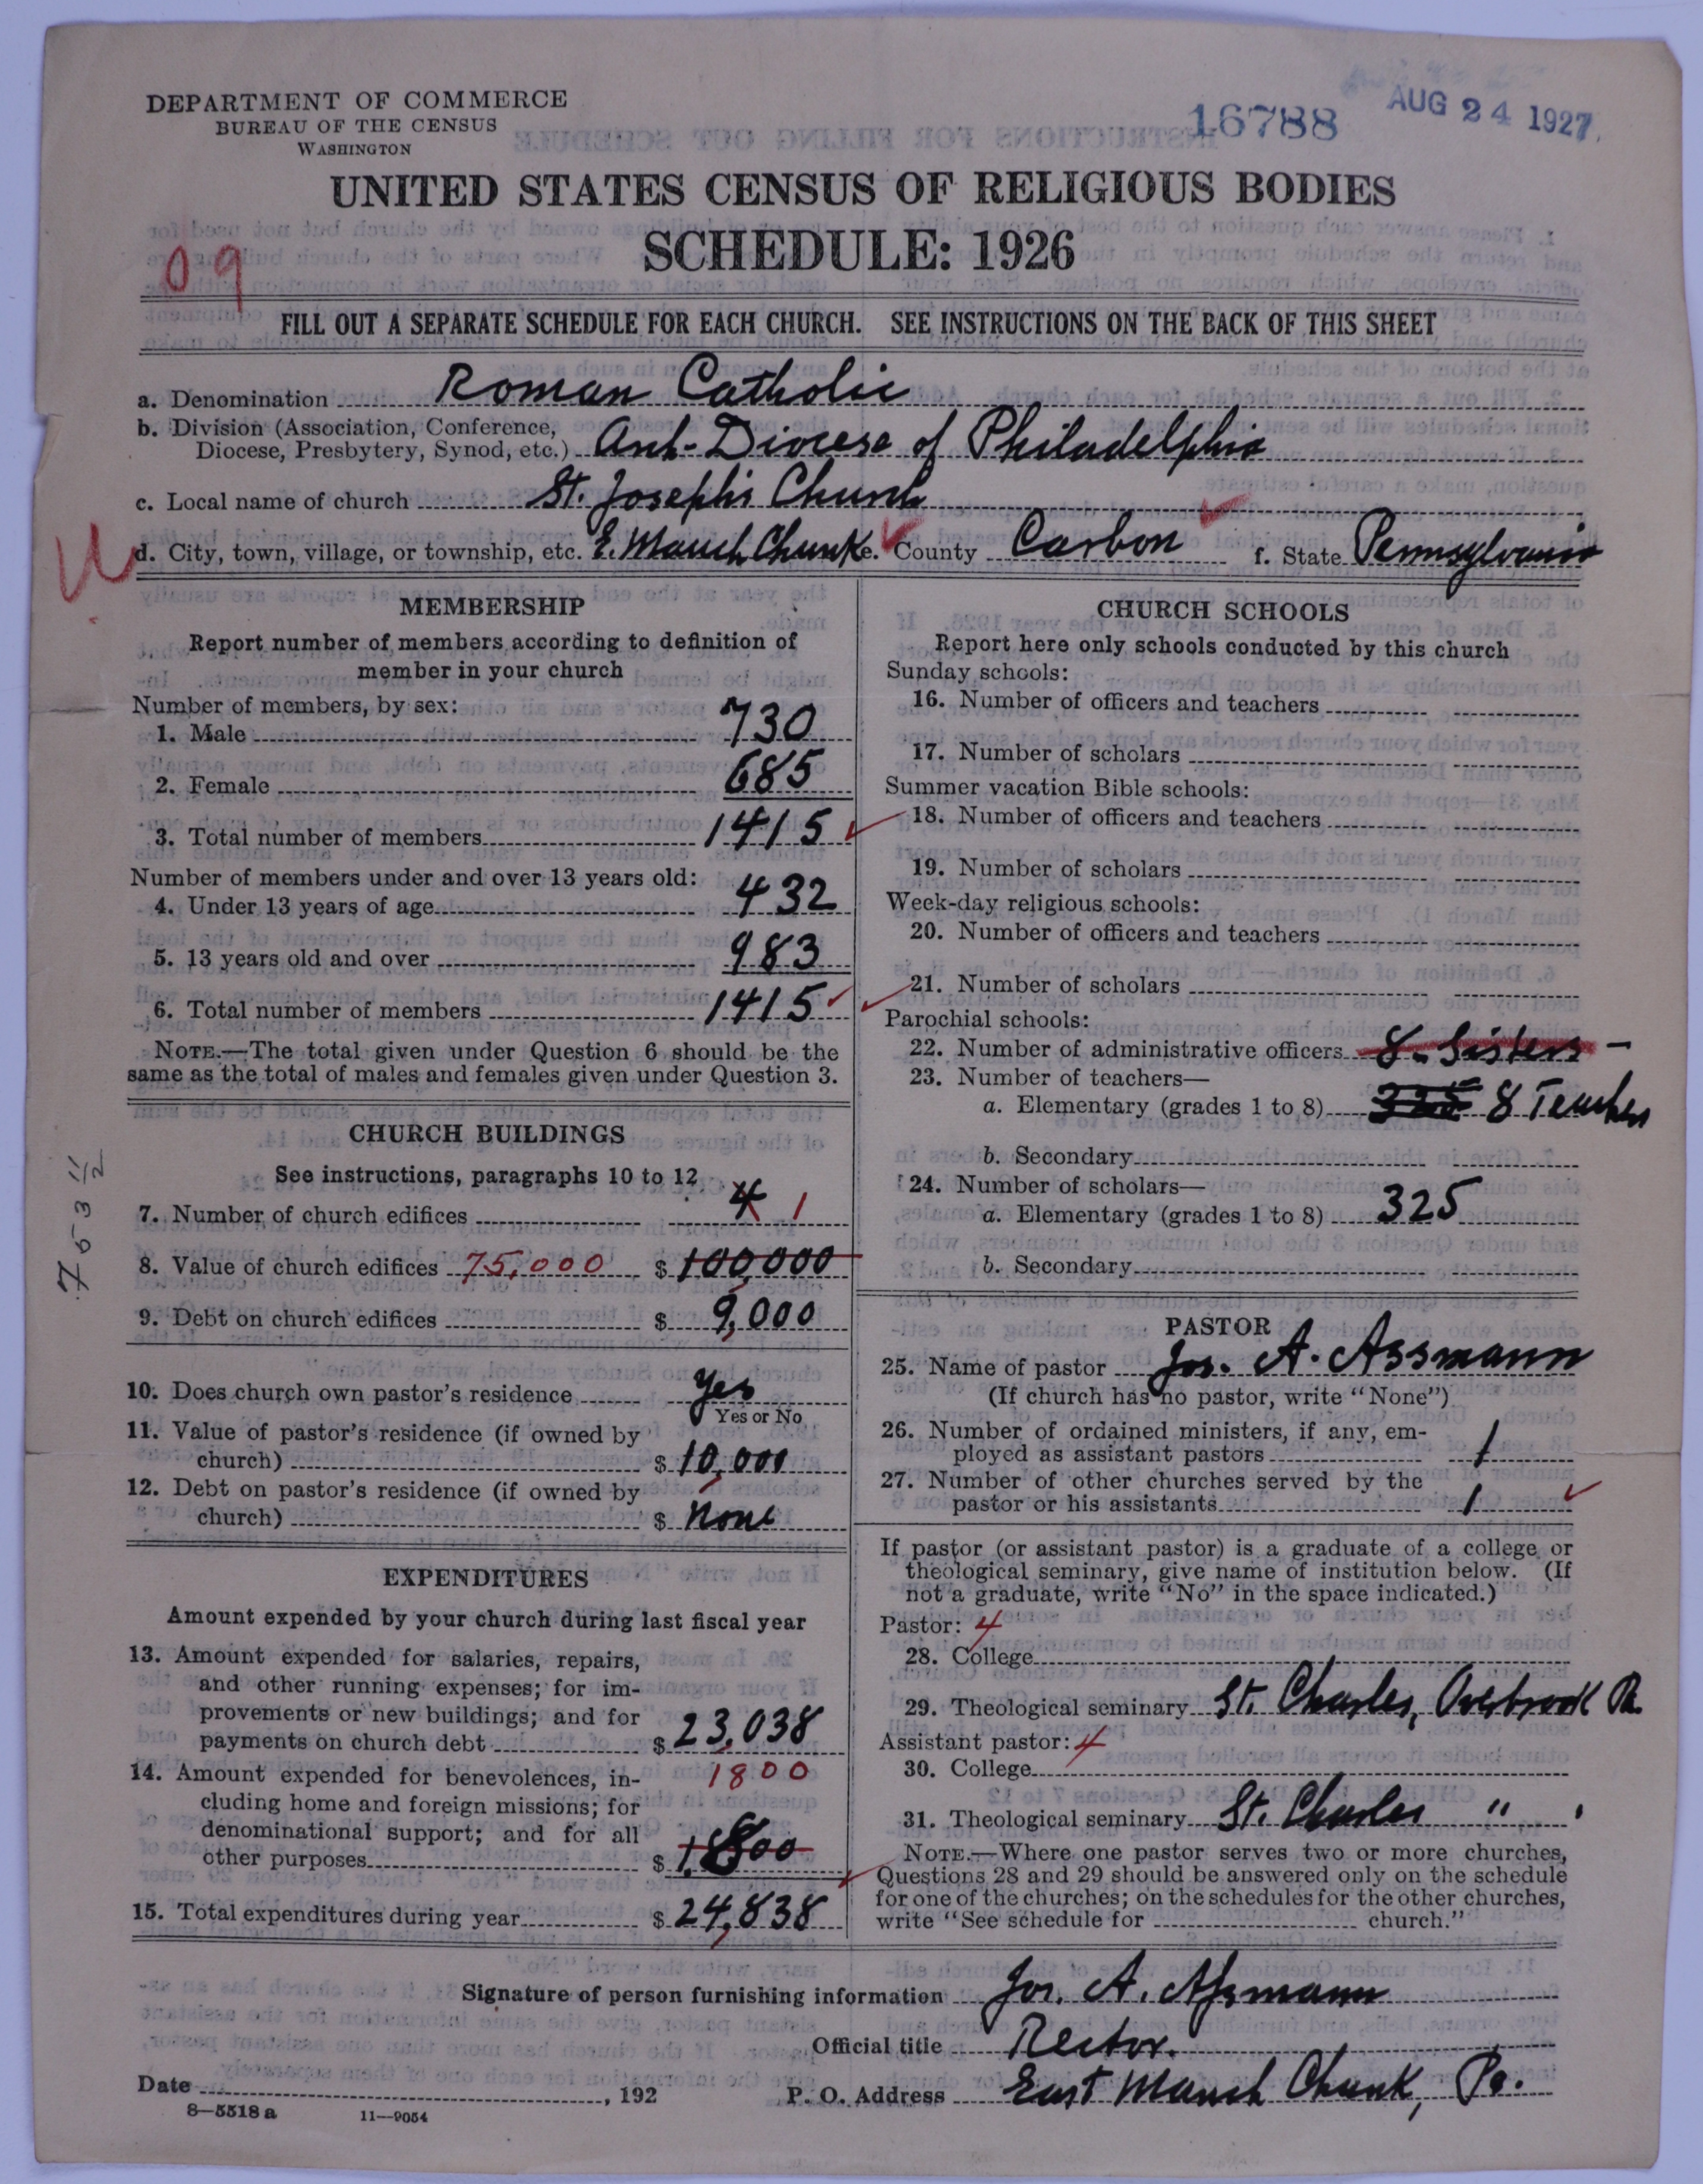 DEPARTMENT OF COMMERCE
BUREAU OF THE CENSUS
WASHINGTON
16788
AUG 24 1927
UNITED STATES CENSUS OF RELIGIOUS BODIES
SCHEDULE: 1926
09
FILL OUT A SEPARATE SCHEDULE FOR EACH CHURCH. SEE INSTRUCTIONS ON THE BACK OF THIS SHEET
a. Denomination Roman Catholic
b. Division (Association, Conference,
Diocese, Presbytery, Synod, etc.) Arch-Diocese of Philadelphia
c. Local name of church St. Joseph's Church
d. City, town, village, or township, etc. E. Mauch Chunk e. County Carbon f. State Pennsylvania
MEMBERSHIP
Report number of members according to definition of
member in your church
Number of members, by sex:
1. Male 730
2. Female 685
3. Total number of members 1415
Number of members under and over 13 years old:
4. Under 13 years of age 432
5. 13 years old and over 983
6. Total number of members 1415
NOTE.—The total given under Question 6 should be the
same as the total of males and females given under Question 3.
CHURCH BUILDINGS
See instructions, paragraphs 10 to 12
7. Number of church edifices 4 1
8. Value of church edifices 75,000 $ 100,000
9. Debt on church edifices $ 9,000
10. Does church own pastor's residence Yes
Yes or No
11. Value of pastor's residence (if owned by
church) $ 10,000
12. Debt on pastor's residence (if owned by
church) $ None
EXPENDITURES
Amount expended by your church during last fiscal year
13. Amount expended for salaries, repairs,
and other running expenses; for im-
provements or new buildings; and for
payments on church debt $ 23,038
14. Amount expended for benevolences, in-
1800
cluding home and foreign missions; for
denominational support; and for all
other purposes $ 1,800
15. Total expenditures during year $ 24,838
CHURCH SCHOOLS
Report here only schools conducted by this church
Sunday schools:
16. Number of officers and teachers
17. Number of scholars
Summer vacation Bible schools:
18. Number of officers and teachers
19. Number of scholars
Week-day religious schools:
20. Number of officers and teachers
21. Number of scholars
Parochial schools:
22. Number of administrative officers 8 - Sisters -
23. Number of teachers—
a. Elementary (grades 1 to 8) 325 8 Teachers
b. Secondary
24. Number of scholars—
a. Elementary (grades 1 to 8) 325
b. Secondary
PASTOR
25. Name of pastor Jos. A. Assmann
(If church has no pastor, write "None")
26. Number of ordained ministers, if any, em-
ployed as assistant pastors 1
27. Number of other churches served by the
pastor or his assistants 1
If pastor (or assistant pastor) is a graduate of a college or
theological seminary, give name of institution below. (If
not a graduate, write "No" in the space indicated.)
Pastor: 4
28. College
29. Theological seminary St. Charles, Overbrook Pa.
Assistant pastor: 4
30. College
31. Theological seminary St. Charles "
NOTE.—Where one pastor serves two or more churches,
Questions 28 and 29 should be answered only on the schedule
for one of the churches; on the schedules for the other churches,
write "See schedule for church."
Signature of person furnishing information Jos. A. Assmann
Official title Rector.
Date , 192 P. O. Address East Mauch Chunk, Pa.
8—5518 a 11—9054